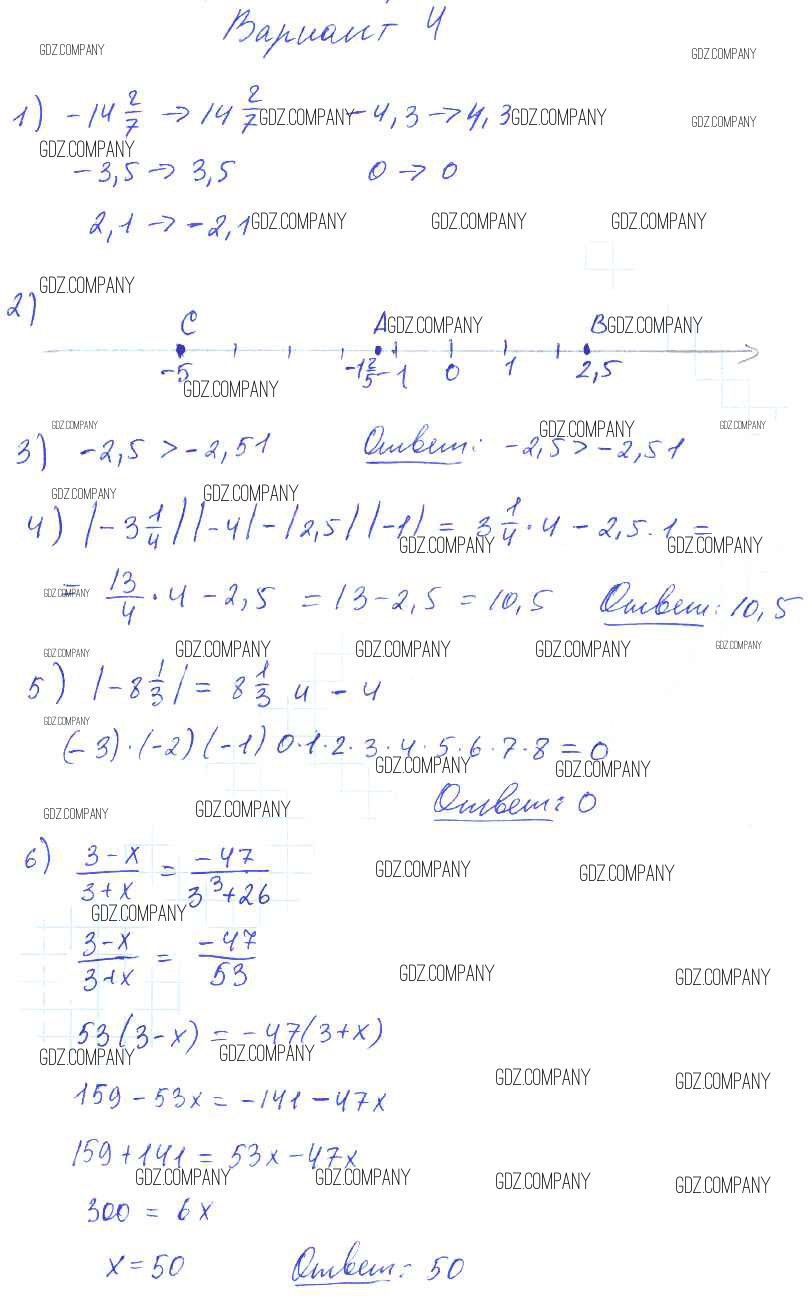 Вариант 4
GDZ.COMPANY GDZ.COMPANY
1) -14 2/7 → 14 2/7 GDZ.COMPANY -4,3 → 4,3 GDZ.COMPANY GDZ.COMPANY
GDZ.COMPANY
-3,5 → 3,5 0 → 0
2,1 → -2,1 GDZ.COMPANY GDZ.COMPANY GDZ.COMPANY
GDZ.COMPANY
2)
C A GDZ.COMPANY B GDZ.COMPANY
-5 -1 2/5 -1 0 1 2,5
GDZ.COMPANY
GDZ.COMPANY GDZ.COMPANY GDZ.COMPANY
3) -2,5 > -2,51 Ответ: -2,5 > -2,51
GDZ.COMPANY GDZ.COMPANY
4) |-3 1/4| |-4| - |2,5| |-1| = 3 1/4 · 4 - 2,5 · 1 =
GDZ.COMPANY GDZ.COMPANY
GDZ.COMPANY
= 13/4 · 4 - 2,5 = 13 - 2,5 = 10,5 Ответ: 10,5
GDZ.COMPANY GDZ.COMPANY GDZ.COMPANY GDZ.COMPANY GDZ.COMPANY
5) |-8 1/3| = 8 1/3 и -4
GDZ.COMPANY
(-3)·(-2)(-1) 0·1·2·3·4·5·6·7·8 = 0
GDZ.COMPANY GDZ.COMPANY
GDZ.COMPANY GDZ.COMPANY Ответ: 0
6) (3-x)/(3+x) = -47/(3³+26)
GDZ.COMPANY GDZ.COMPANY
GDZ.COMPANY
(3-x)/(3+x) = -47/53
GDZ.COMPANY GDZ.COMPANY
53(3-x) = -47(3+x)
GDZ.COMPANY GDZ.COMPANY
GDZ.COMPANY GDZ.COMPANY
159 - 53x = -141 - 47x
159 + 141 = 53x - 47x
GDZ.COMPANY GDZ.COMPANY GDZ.COMPANY GDZ.COMPANY
300 = 6x
x = 50 Ответ: 50